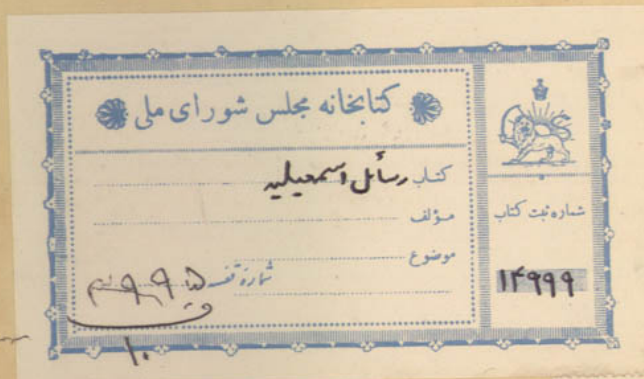 کتابخانه مجلس شورای ملی
کتاب رسائل اسمعیلیه
مؤلف
موضوع
شماره قفسه
۱۰
شماره ثبت کتاب
۱۴۹۹۹